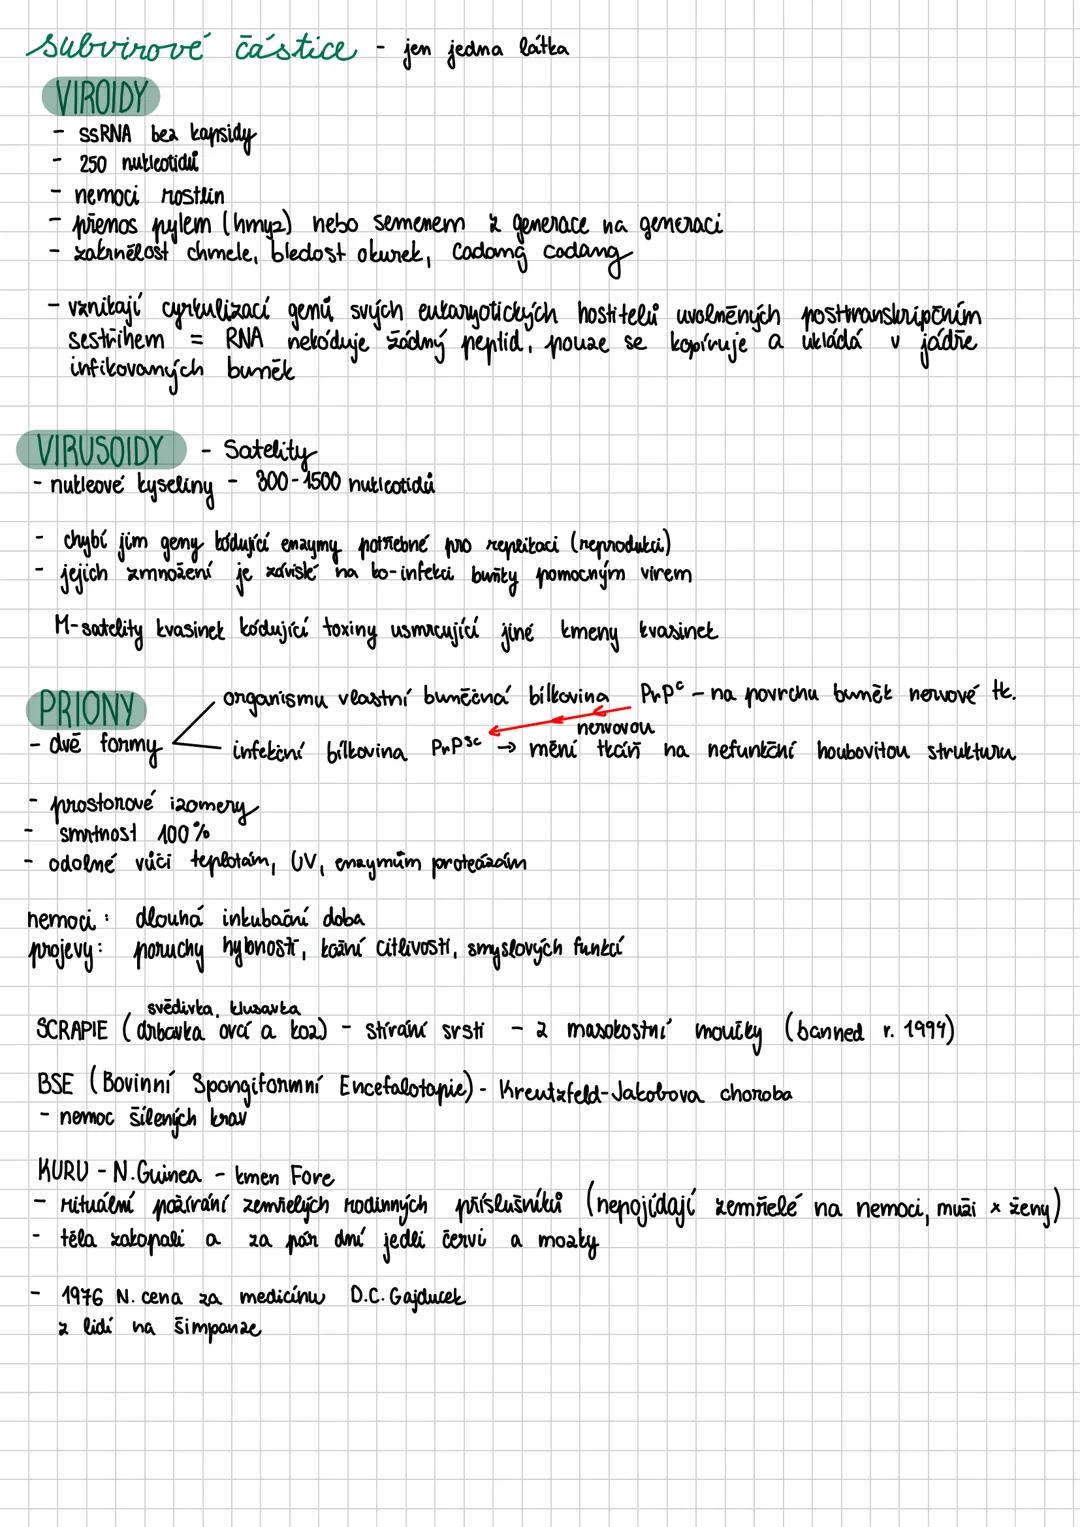 subvirové částice - jen jedna látka
VIROIDY
- ssRNA bez kapsidy
- 250 nukleotidů
- nemoci rostlin
- přenos pylem (hmyz) nebo semenem z generace na generaci
- zakrnělost chmele, bledost okurek, Cadang cadang
- vznikají cyrkulizací genů svých eukaryotických hostitelů uvolněných posttranskripčním
sestřihem = RNA nekóduje žádný peptid, pouze se kopíruje a ukládá v jádře
infikovaných buněk
VIRUSOIDY - Satelity
- nukleové kyseliny - 300-1500 nukleotidů
- chybí jim geny kódující enzymy potřebné pro replikaci (reprodukci)
- jejich zmnožení je závislé na ko-infekci buňky pomocným virem
M-satelity kvasinek kódující toxiny usmrcující jiné kmeny kvasinek
PRIONY
organismu vlastní buněčná bílkovina PrPc - na povrchu buněk nervové tk.
- dvě formy
nervovou
infekční bílkovina PrPsc → mění tkáň na nefunkční houbovitou strukturu
- prostorové izomery
- smrtnost 100%
- odolné vůči teplotám, UV, enzymům proteázám
nemoci: dlouhá inkubační doba
projevy: poruchy hybnosti, kožní citlivosti, smyslových funkcí
svědivka, klusavka
SCRAPIE (drbavka ovcí a koz) - stírání srsti - z masokostní moučky (banned r. 1994)
BSE (Bovinní Spongiformní Encefalotapie) - Kreutzfeld-Jakobova choroba
- nemoc šílených krav
KURU - N.Guinea - kmen Fore
- rituální požírání zemřelých rodinných příslušníků (nepojídají zemřelé na nemoci, muži x ženy)
- těla zakopali a za pár dní jedli červi a mozky
- 1976 N. cena za medicínu D.C. Gajducek
z lidí na šimpanze